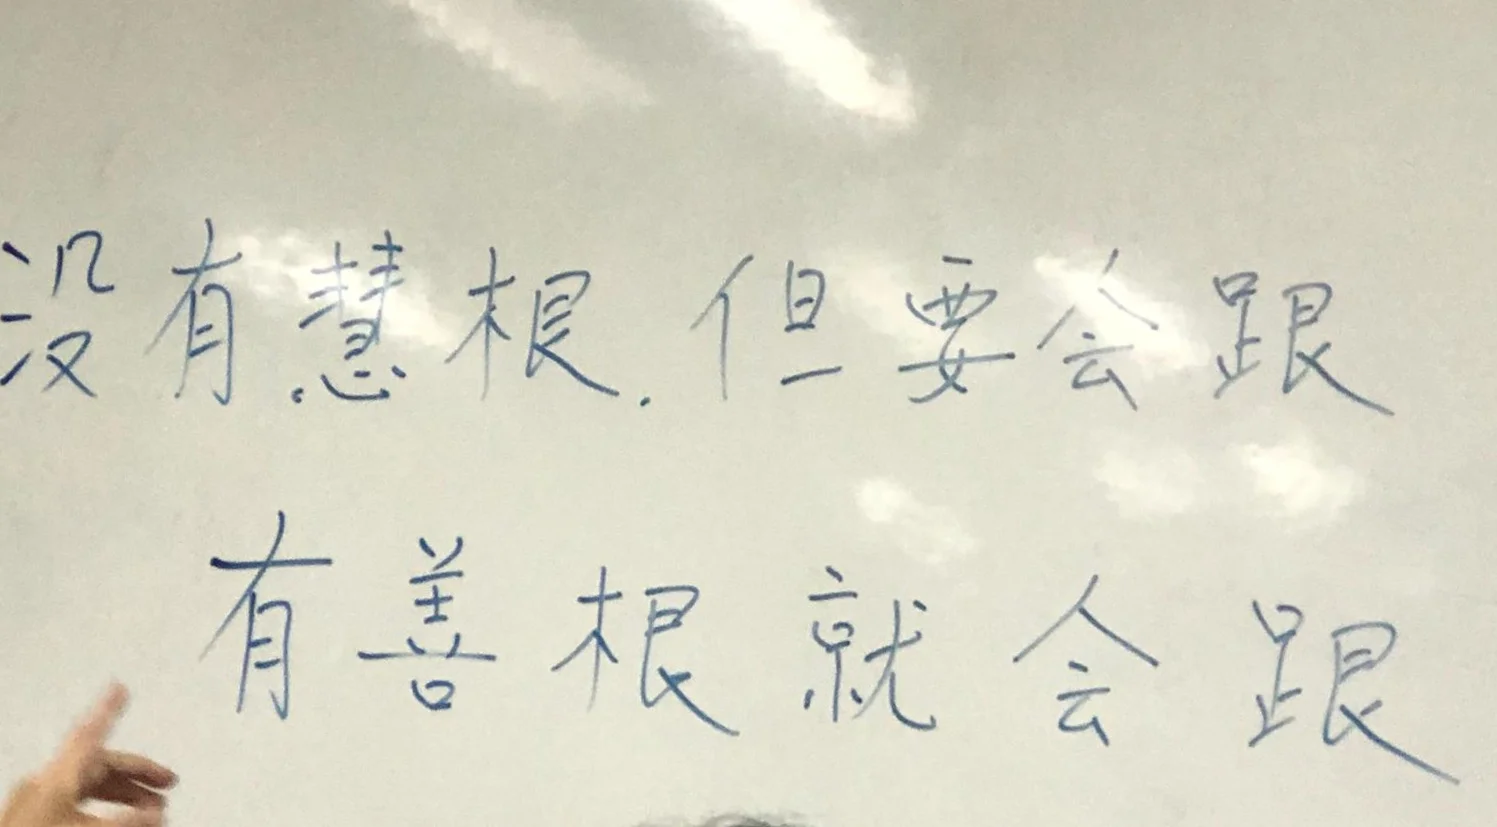 没有慧根.但要会跟
有善根就会跟